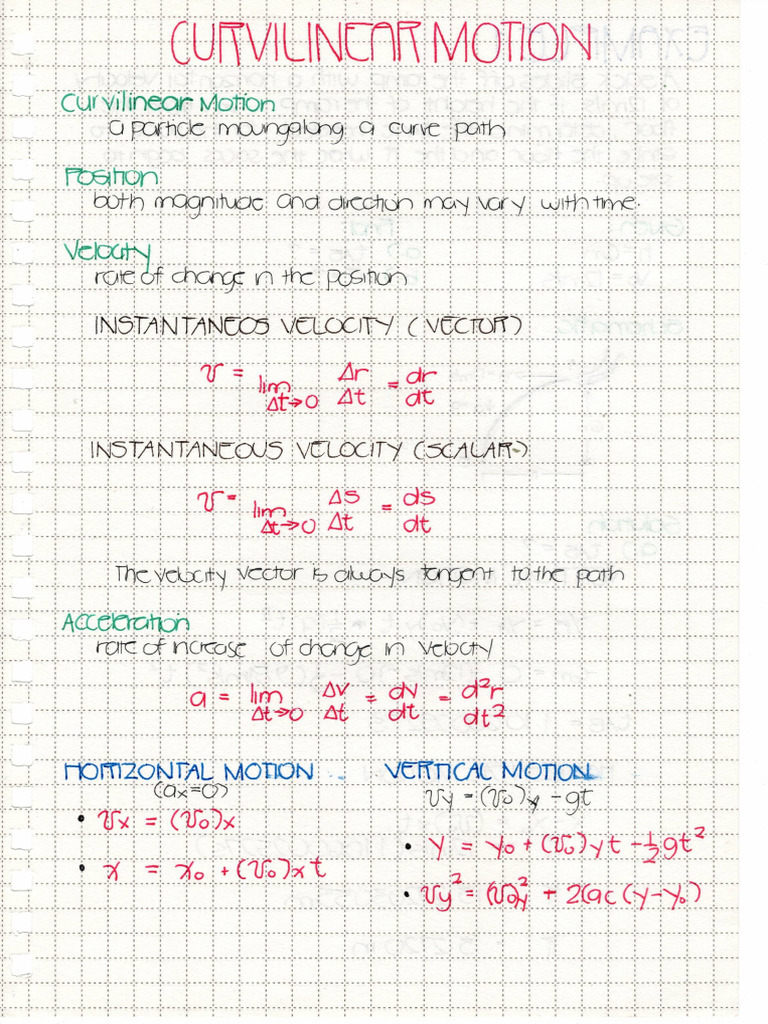 CURVILINEAR MOTION
Curvilinear Motion
a particle moving along a curve path
Position
both magnitude and direction may vary with time.
Velocity
rate of change in the position
INSTANTANEOS VELOCITY (VECTOR)
v = lim Δt→0 Δr/Δt = dr/dt
INSTANTANEOUS VELOCITY (SCALAR)
v = lim Δt→0 Δs/Δt = ds/dt
The velocity vector is always tangent to the path
Acceleration
rate of increase of change in velocity
a = lim Δt→0 Δv/Δt = dv/dt = d²r/dt²
HORIZONTAL MOTION
(ax=0)
• vx = (v0)x
• x = x0 + (v0)x t
VERTICAL MOTION
vy = (v0)y - gt
• y = y0 + (v0)yt - 1/2 gt²
• vy² = (v0)y² + 2(ac(y-y0)